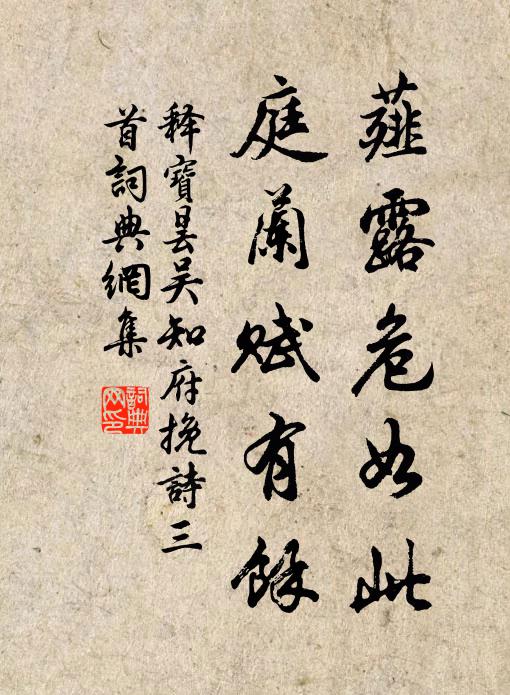 薤露危如此
庭蘭賦有餘
釋寶曇吳知府挽詩三
首詞典網集
詞典网印